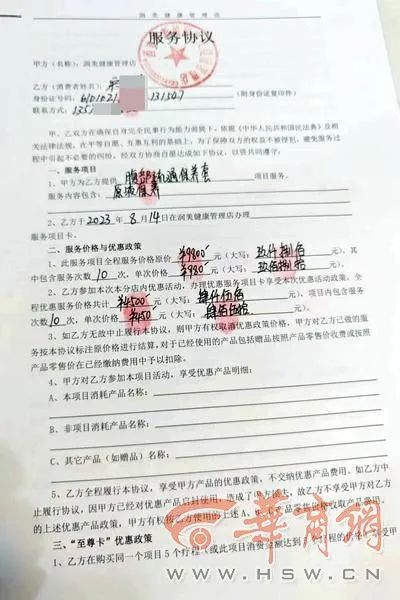 润美健康管理店
服务协议
甲方（名称）：润美健康管理店
乙方（消费者姓名）：宋
身份证号码： 131507 （附身份证复印件）
联系方式：
甲、乙双方在确保自身完全民事行为能力前提下，依据《中华人民共和国民法典》及相
关律法规，在平等自愿、互惠互利的基础上，为了保障双方的权益不被侵犯，避免服务过
程中引起不必要的纠纷，经双方协商自愿达成如下协议，以资共同遵守：
一、服务项目
1、甲方为乙方提供 腹部 保养套 项目服务，
服务内容包含： 保养
2、乙方于2023年8月14日在润美健康管理店办理
服务项目卡。
二、服务价格与优惠政策
1、此服务项目全程服务原价 ¥9800 元（大写： 元），其
中包含服务次数10次，单次价格 ¥980 元（大写： 元）。
2、乙方参加本次本分店内优惠活动，办理优惠服务项目卡享受本次优惠活动政策，全
程优惠服务价格共计 ¥4500 元（大写：肆仟伍佰 元），项目内包含服务
次数10次，单次价格 ¥450 元（大写：肆佰伍拾 元）。
3、如乙方无故中止履行本协议，则甲方有权取消优惠政策价格，甲方对乙方已做的服
务按本协议标注原价格进行结算，对于已经使用的产品包括赠品按照产品零售价收费或按照
产品零售价在已经缴纳费用中予以扣除。
4、甲方对乙方参加本项目活动，享受优惠产品明细：
A、本项目消耗产品名称：
B、非项目消耗产品名称：
C、其它产品（如赠品）名称：
5、乙方全程履行本协议，享受甲方产品的优惠政策，不交纳优惠产品费用。如乙方中
止履行本协议，因甲方已经对优惠产品启封使用，造成了 ，故乙方不享受甲方对乙方
的上述优惠产品政策，甲方有权按乙方使用的上述A、 产品零售价格收取产品费用。
三、“至尊卡”优惠政策
1、乙方在购买同一个项目5个疗程、或此项目消费金额达到5个疗程的 享受甲
华商网
WWW.HSW.CN